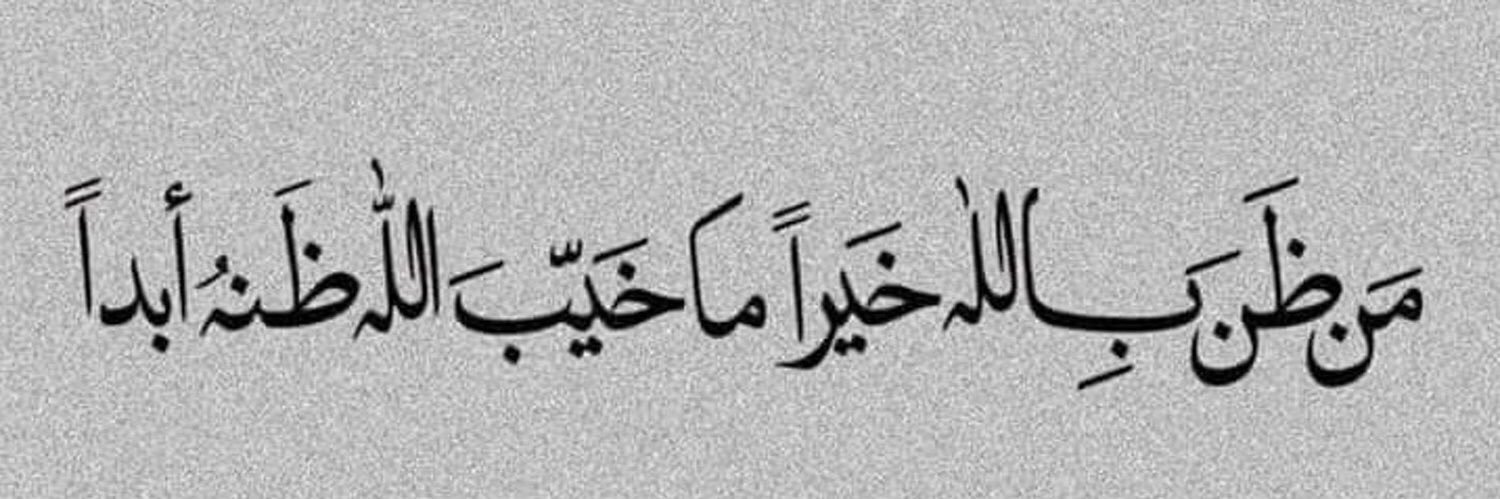 مَن ظَن بِاللٰه خَيَراً ما خَيَّبَ اللّٰه ظَنهُ أبداً